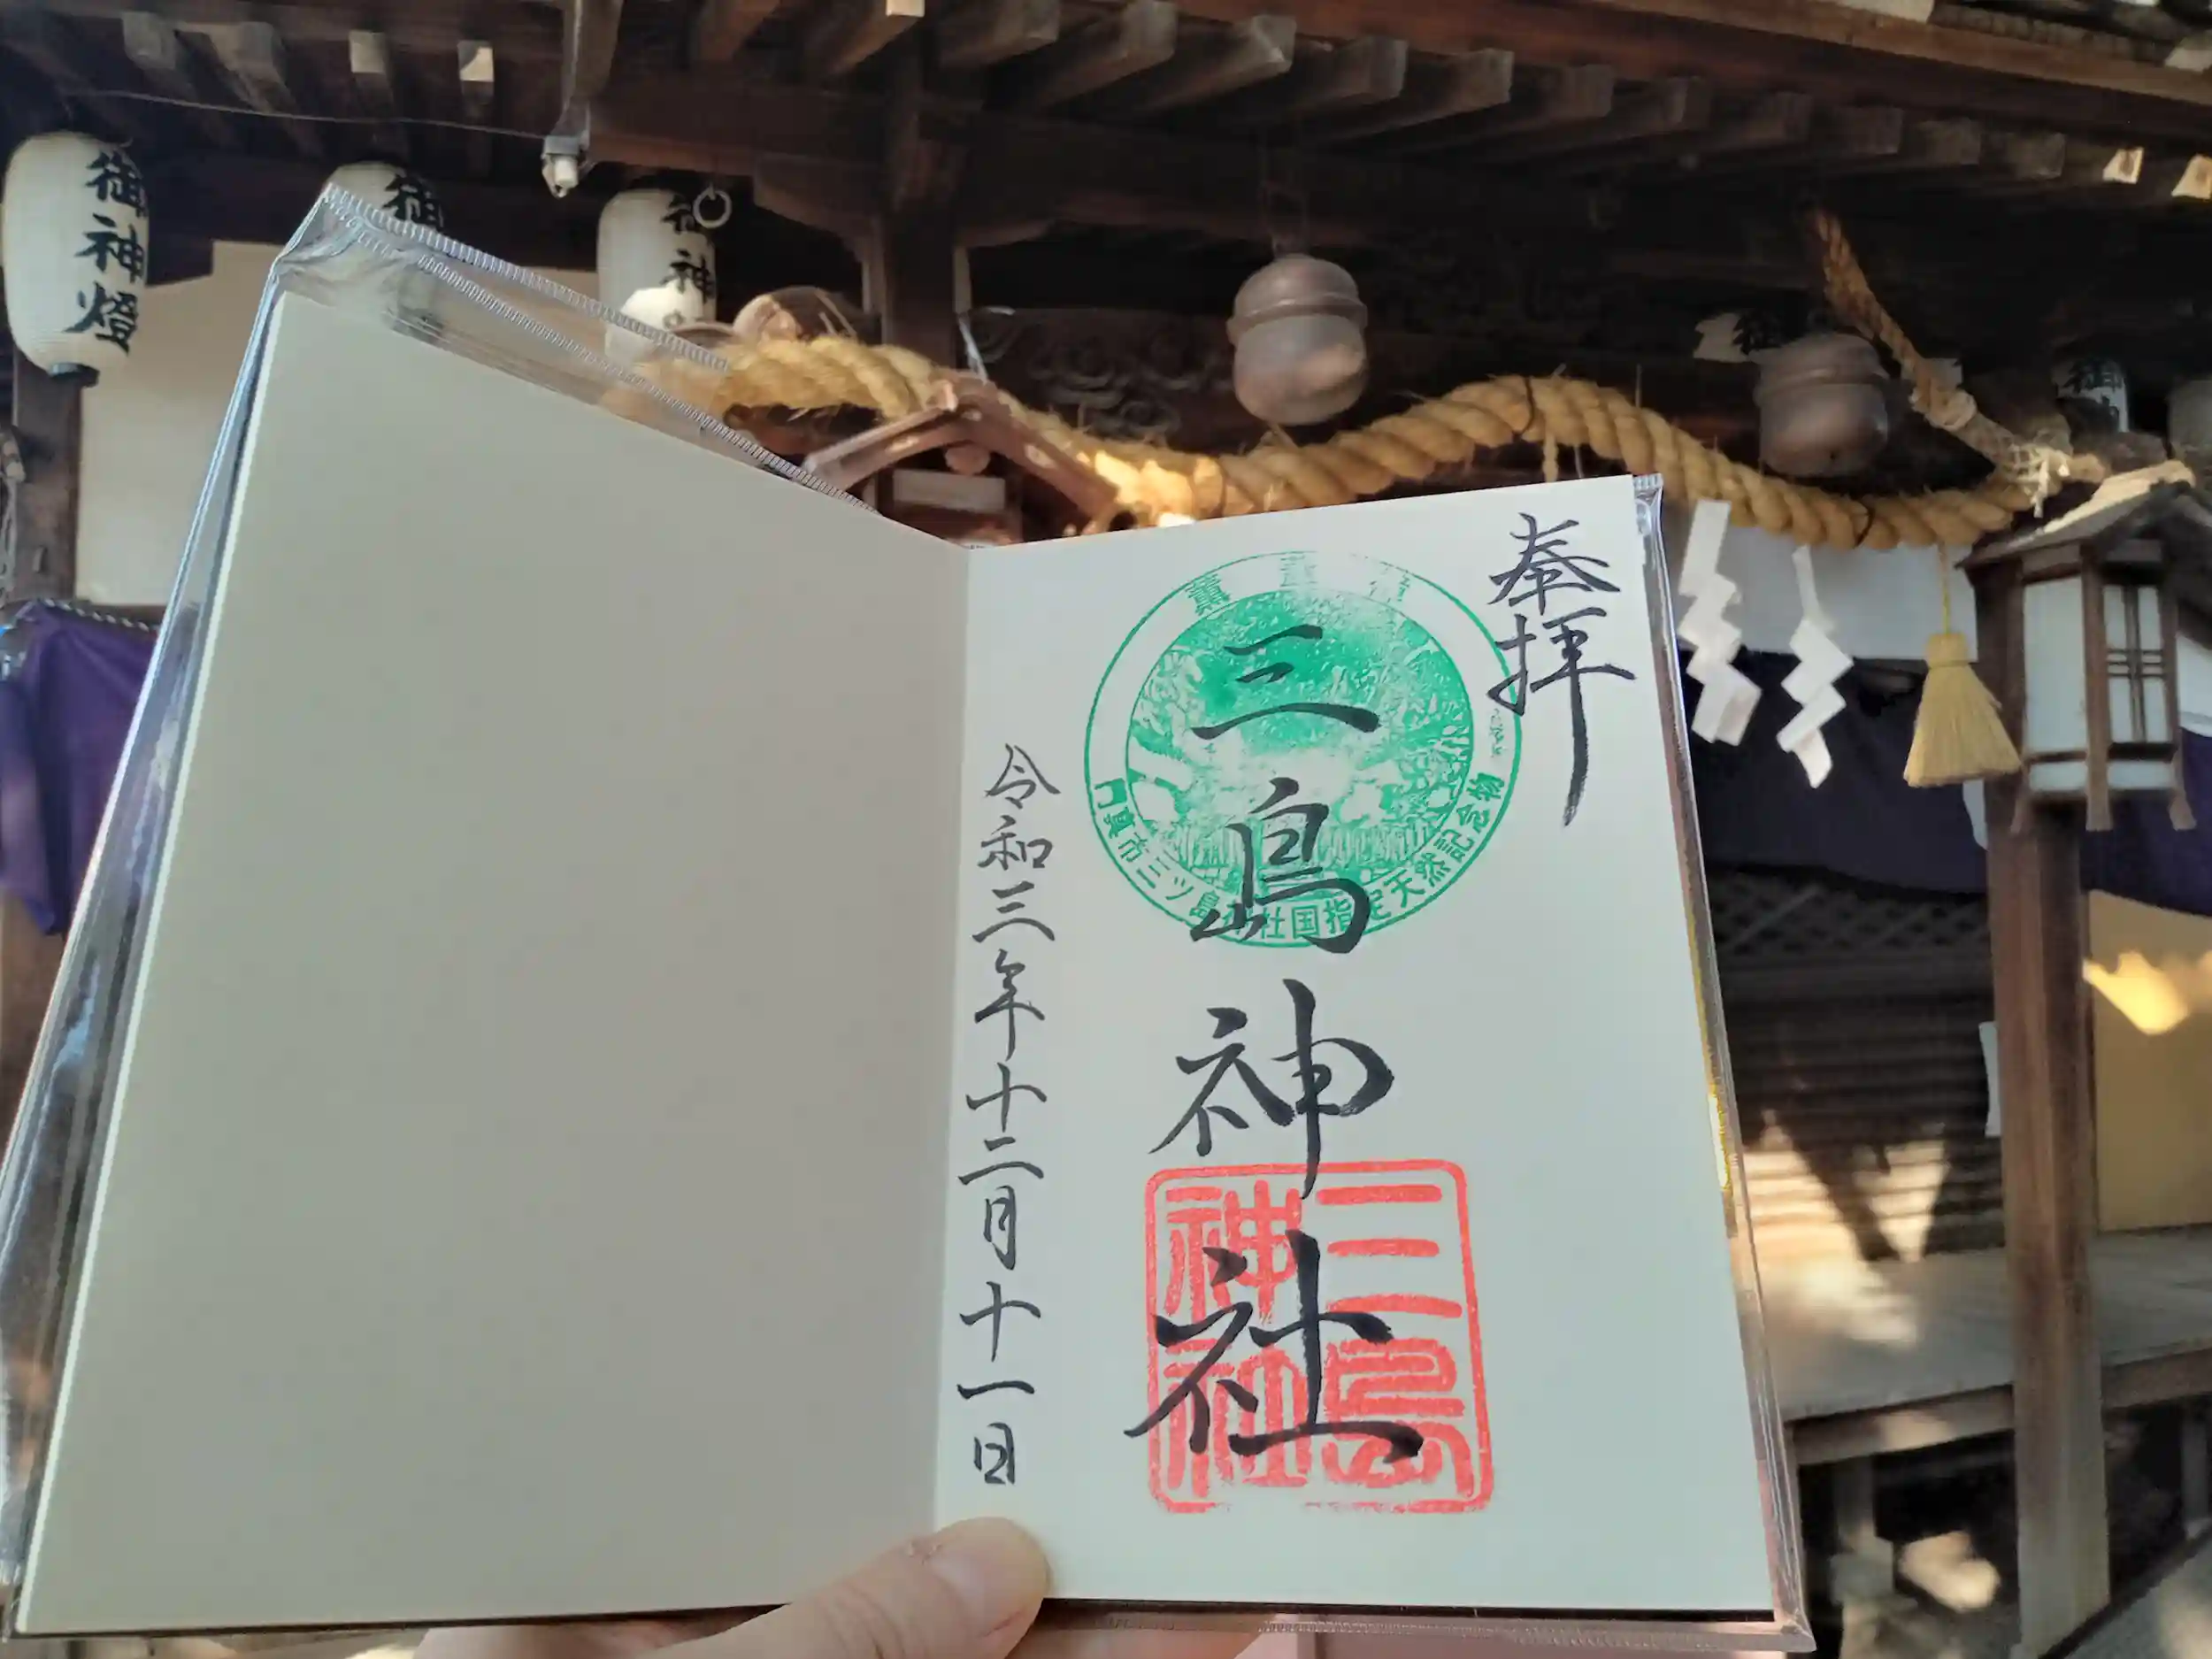 奉拝
三島神社
令和三年十二月十一日
薫蓋樟
門真市三ツ島神社国指定天然記念物
三島
神社
御神燈
御
御神
御